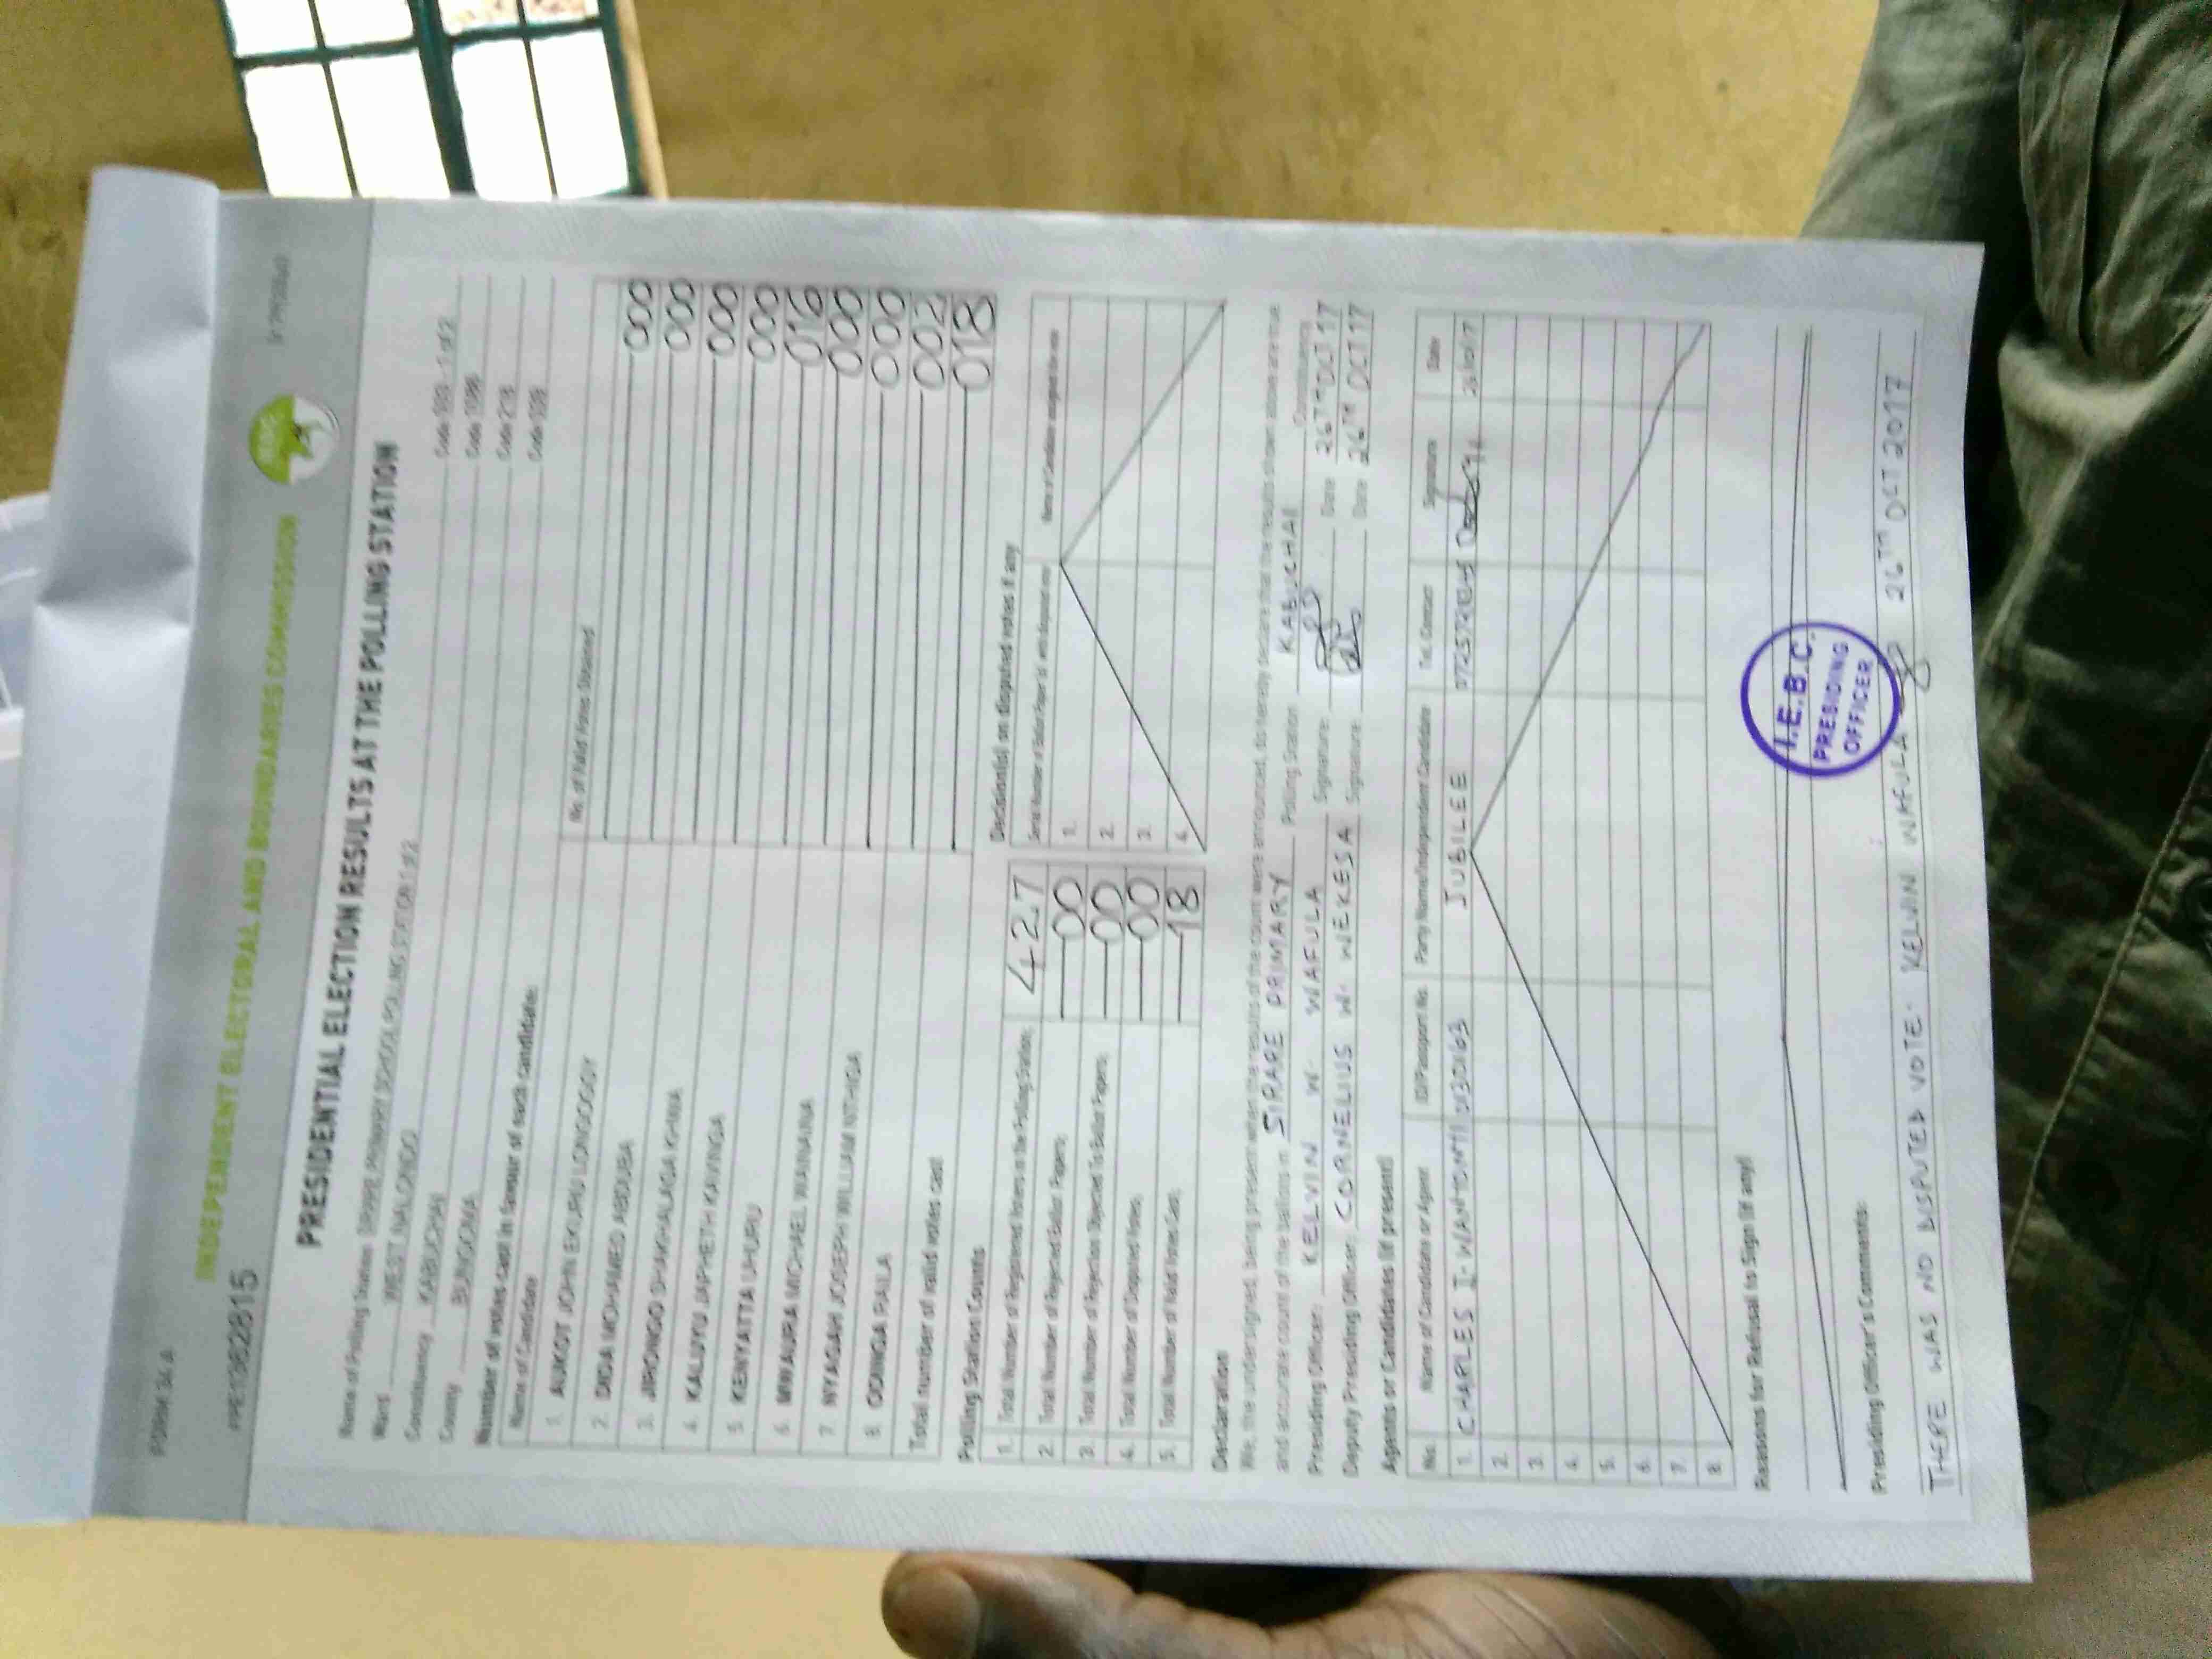 FORM 34 A
INDEPENDENT ELECTORAL AND BOUNDARIES COMMISSION
PPE1362815
PRESIDENTIAL ELECTION RESULTS AT THE POLLING STATION
Name of Polling Station SIRARE PRIMARY SCHOOL POLLING STATION 1 of 2 Code 1 of 2
Ward WEST NALONDO Code
Constituency KABUCHAI Code 218
County BUNGOMA Code 039
Number of votes cast in favour of each candidate:
Name of Candidate No. of Valid Votes Obtained
1. AUKOT JOHN EKURU LONGOGGY 000
2. DIDA MOHAMED ABDUBA 000
3. JIRONGO SHAKHALAGA KHWA 000
4. KALUYU JAPHETH KAVINGA 000
5. KENYATTA UHURU 016
6. MWAURA MICHAEL WAINAINA 000
7. NYAGAH JOSEPH WILLIAM NTHIGA 000
8. ODINGA RAILA 002
Total number of valid votes cast 018
Polling Station Counts
1. Total Number of Registered Voters in the Polling Station: 427
2. Total Number of Rejected Ballot Papers: 00
3. Total Number of Rejection Objected To Ballot Papers: 00
4. Total Number of Disputed Votes: 00
5. Total Number of Valid Votes Cast: 18
Decision(s) on disputed votes if any
1.
2.
3.
4.
Declaration
We, the undersigned, being present when the results of the count were announced, do hereby declare that the results shown above are true
and accurate count of the ballots in SIRARE PRIMARY Polling Station KABUCHAI Constituency
Presiding Officer: KELVIN W. WAFULA Signature: Date 26TH OCT 17
Deputy Presiding Officer: CORNELIUS W. WEKESA Signature: Date 26TH OCT 17
Agents or Candidates (if present)
No. Name of Candidate or Agent ID/Passport No. Party Name/Independent Candidate Tel. Contact Signature Date
1. CHARLES I. JUBILEE 26/10/17
2.
3.
4.
5.
6.
7.
8.
Reasons for Refusal to Sign (if any)
I.E.B.C.
PRESIDING
OFFICER
Presiding Officer's Comments:
THERE WAS NO DISPUTED VOTE. KELVIN WAFULA 26TH OCT 2017